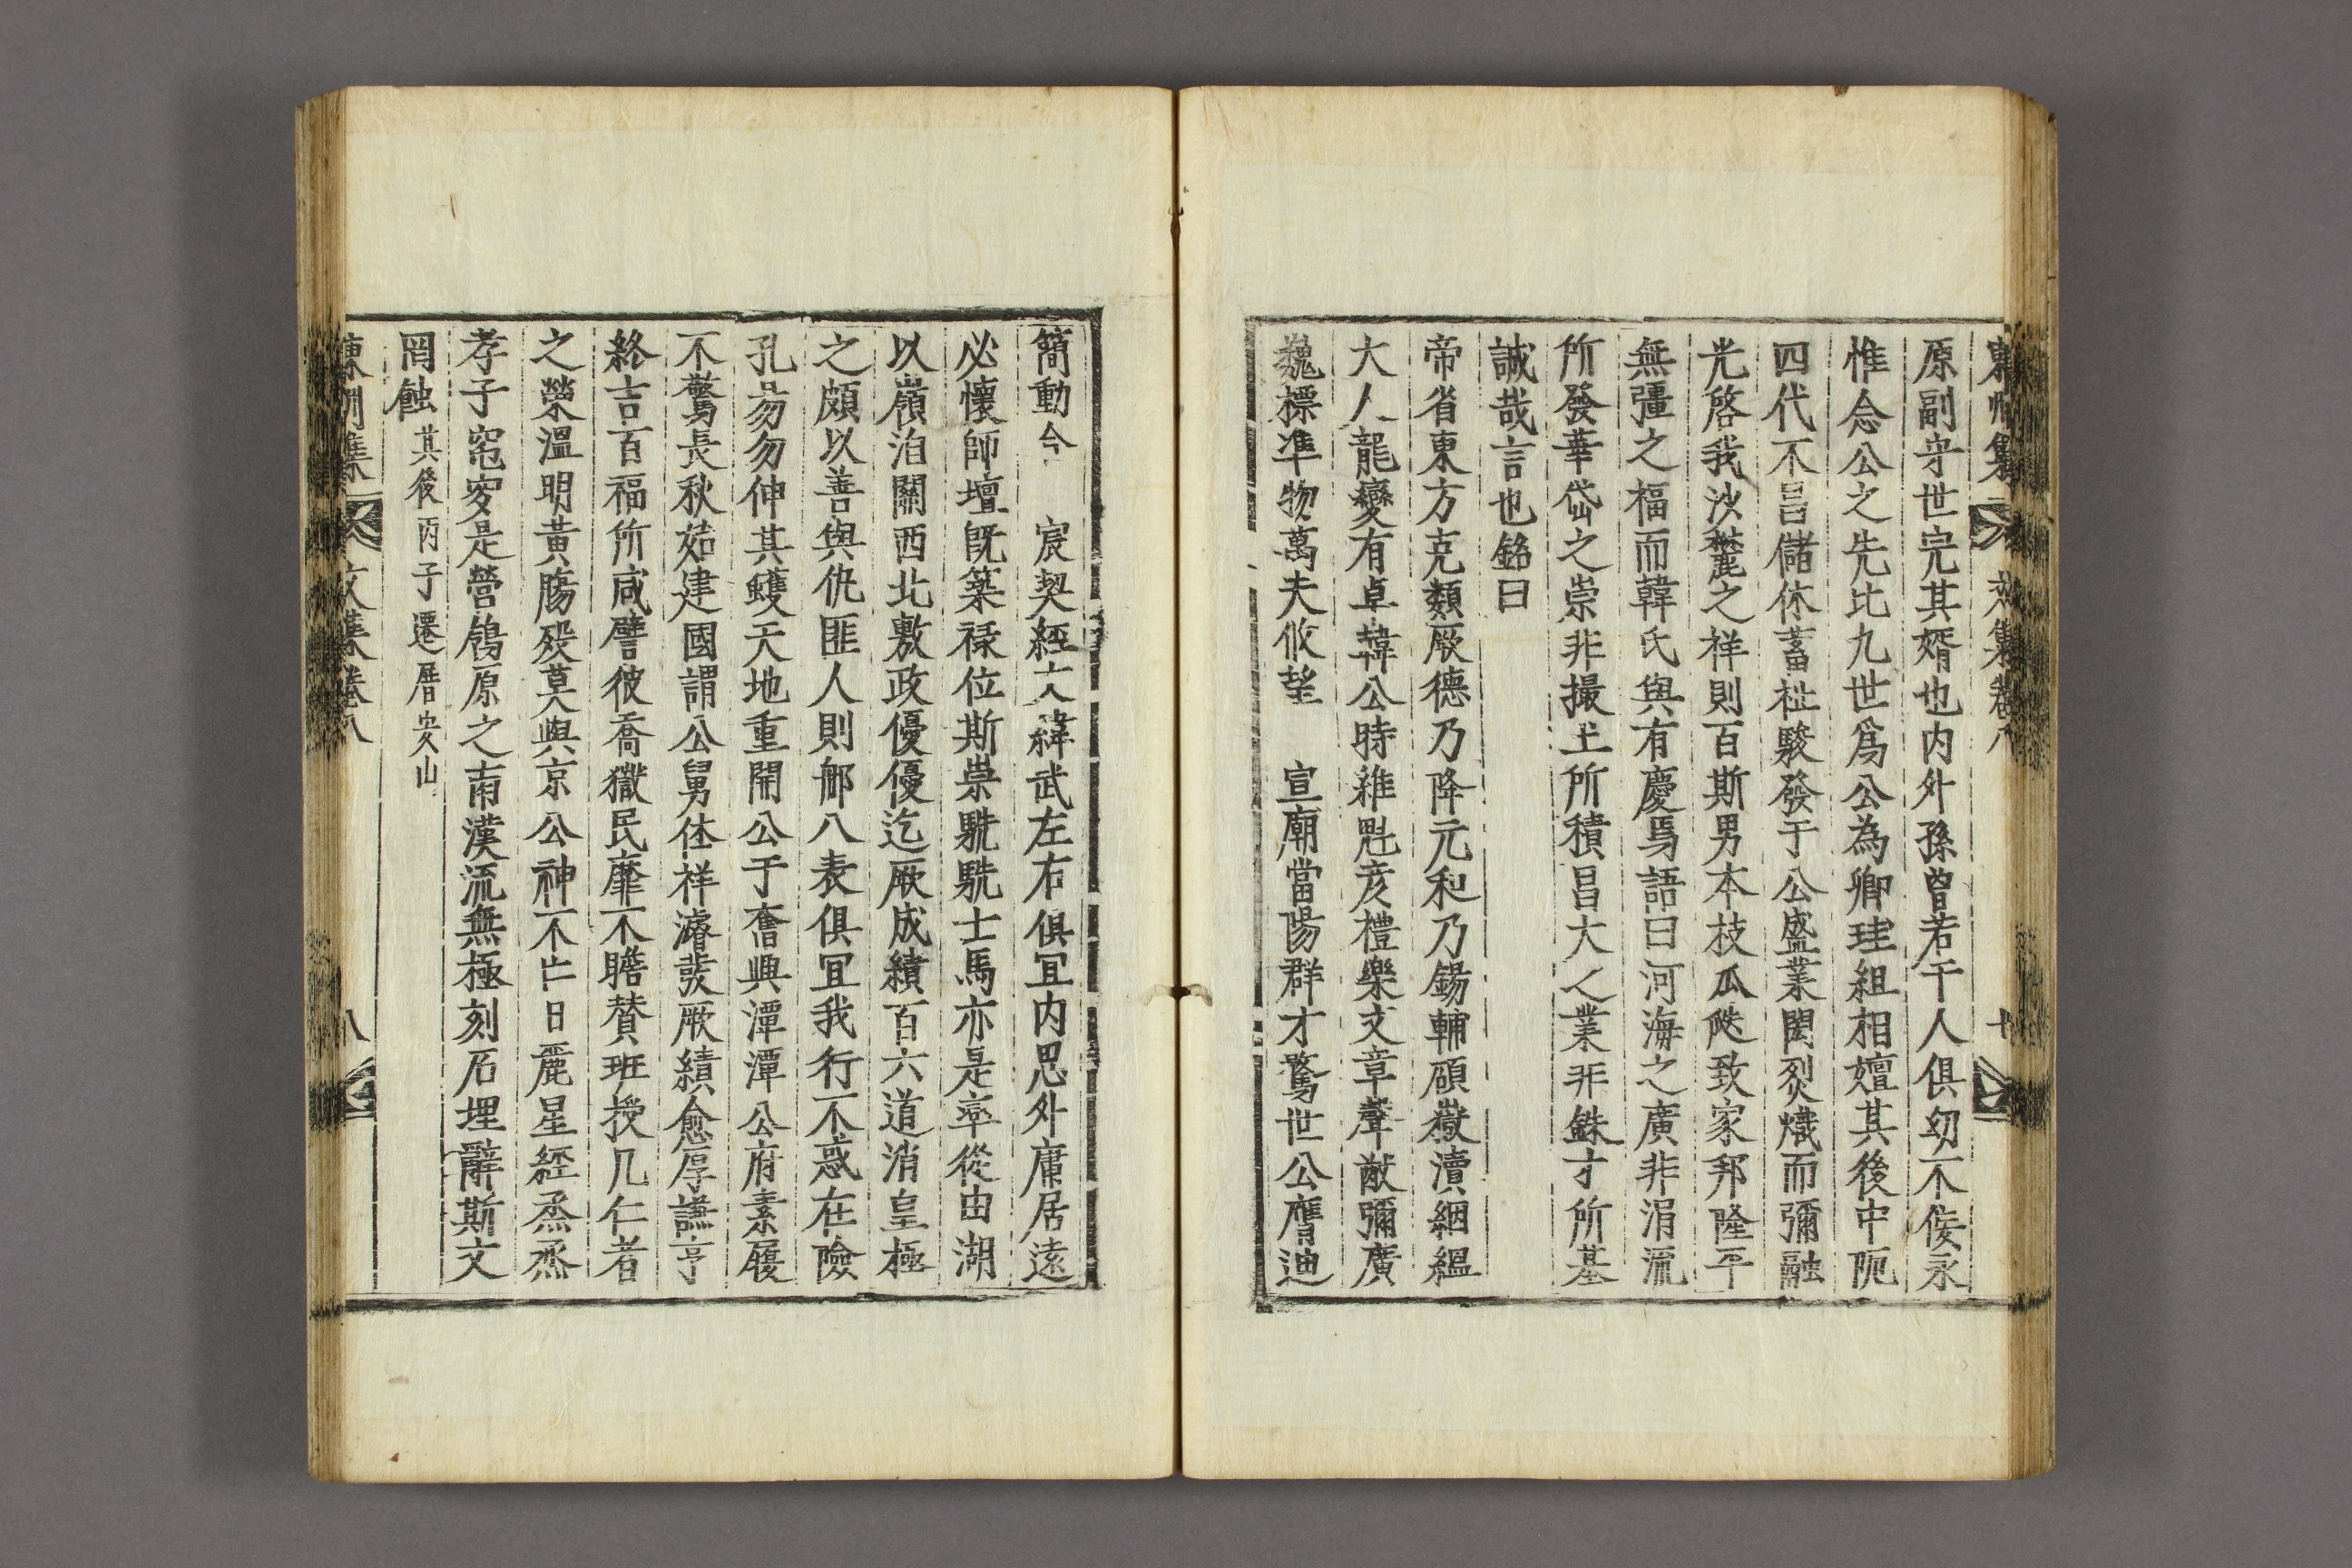 東州集 文集卷八 十
原副守世完其婿也内外孫曾若干人俱幼不侫永
惟念公之先比九世爲公為卿珪組相嬗其後中阨
四代不呂儲休蓄祉駿發于公盛業閎烈熾而彌融
光啓我沙麓之祥則百斯男本枝瓜瓞致家邦隆平
無彊之福而韓氏與有慶焉語曰河海之廣非涓流
所發華岱之崇非撮土所積昌大之業非銖寸所基
誠哉言也銘曰
帝省東方克類厥德乃降元和乃錫輔碩嶽瀆絪縕
大人龍變有卓韓公時維髦彦禮樂文章聲猷彌廣
巍標凖物萬夫攸望 宣廟當陽群才驚世公膺迪
簡動今 宸契經文緯武左右俱冝内思外庸居遠
必懷師壇旣築祿位斯崇駪駪士馬亦是率從由湖
以嶺洎關西北敷政優優迄厥成績百六道消皇極
之頗以善與仇匪人則郷八表俱冝我行不惑在險
孔易勿伸其蠖天地重開公于奮興潭潭公府素履
不驚長秋始建國謂公舅休祥濬發厥績愈厚謙亨
終吉百福所咸譬彼喬嶽民靡不瞻賛班授几仁者
之榮溫明黃膓殁莫與京公神不亡日麗星經烝烝
孝子窀穸是營鴒原之南漢流無極刻石埋辭斯文
罔蝕其後丙子遷厝安山
東州集 文集卷八 八